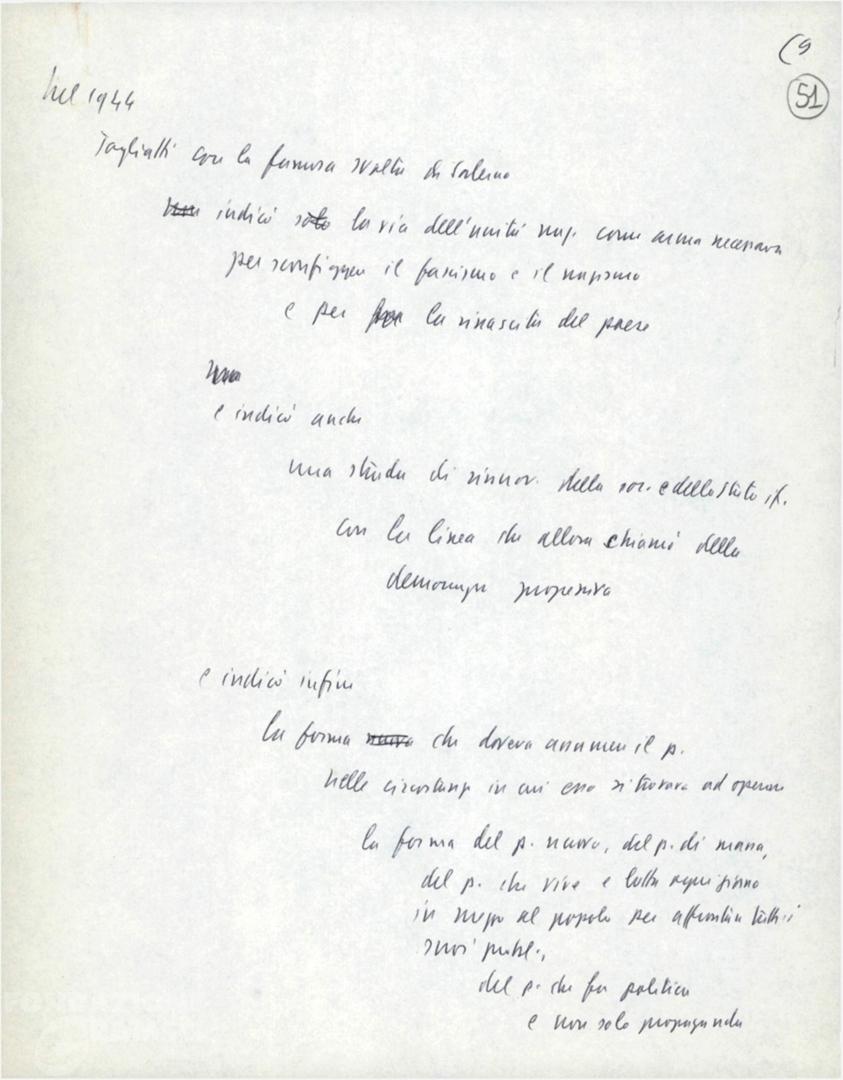 (9
51
Nel 1944
Togliatti con la famosa svolta di Salerno
non indicò solo la via dell'unità naz. come arma necessaria
per sconfiggere il fascismo e il nazismo
e per la rinascita del paese
e indicò anche
una strada di rinnov. della soc. e dello Stato it.
con la linea che allora chiamò della
democrazia progressiva
e indicò infine
la forma nuova che doveva assumere il p.
nelle circostanze in cui esso si trovava ad operare
la forma del p. nuovo, del p. di massa,
del p. che vive e lotta ogni giorno
in mezzo al popolo per affrontare tutti i
suoi probl.,
del p. che fa politica
e non solo propaganda